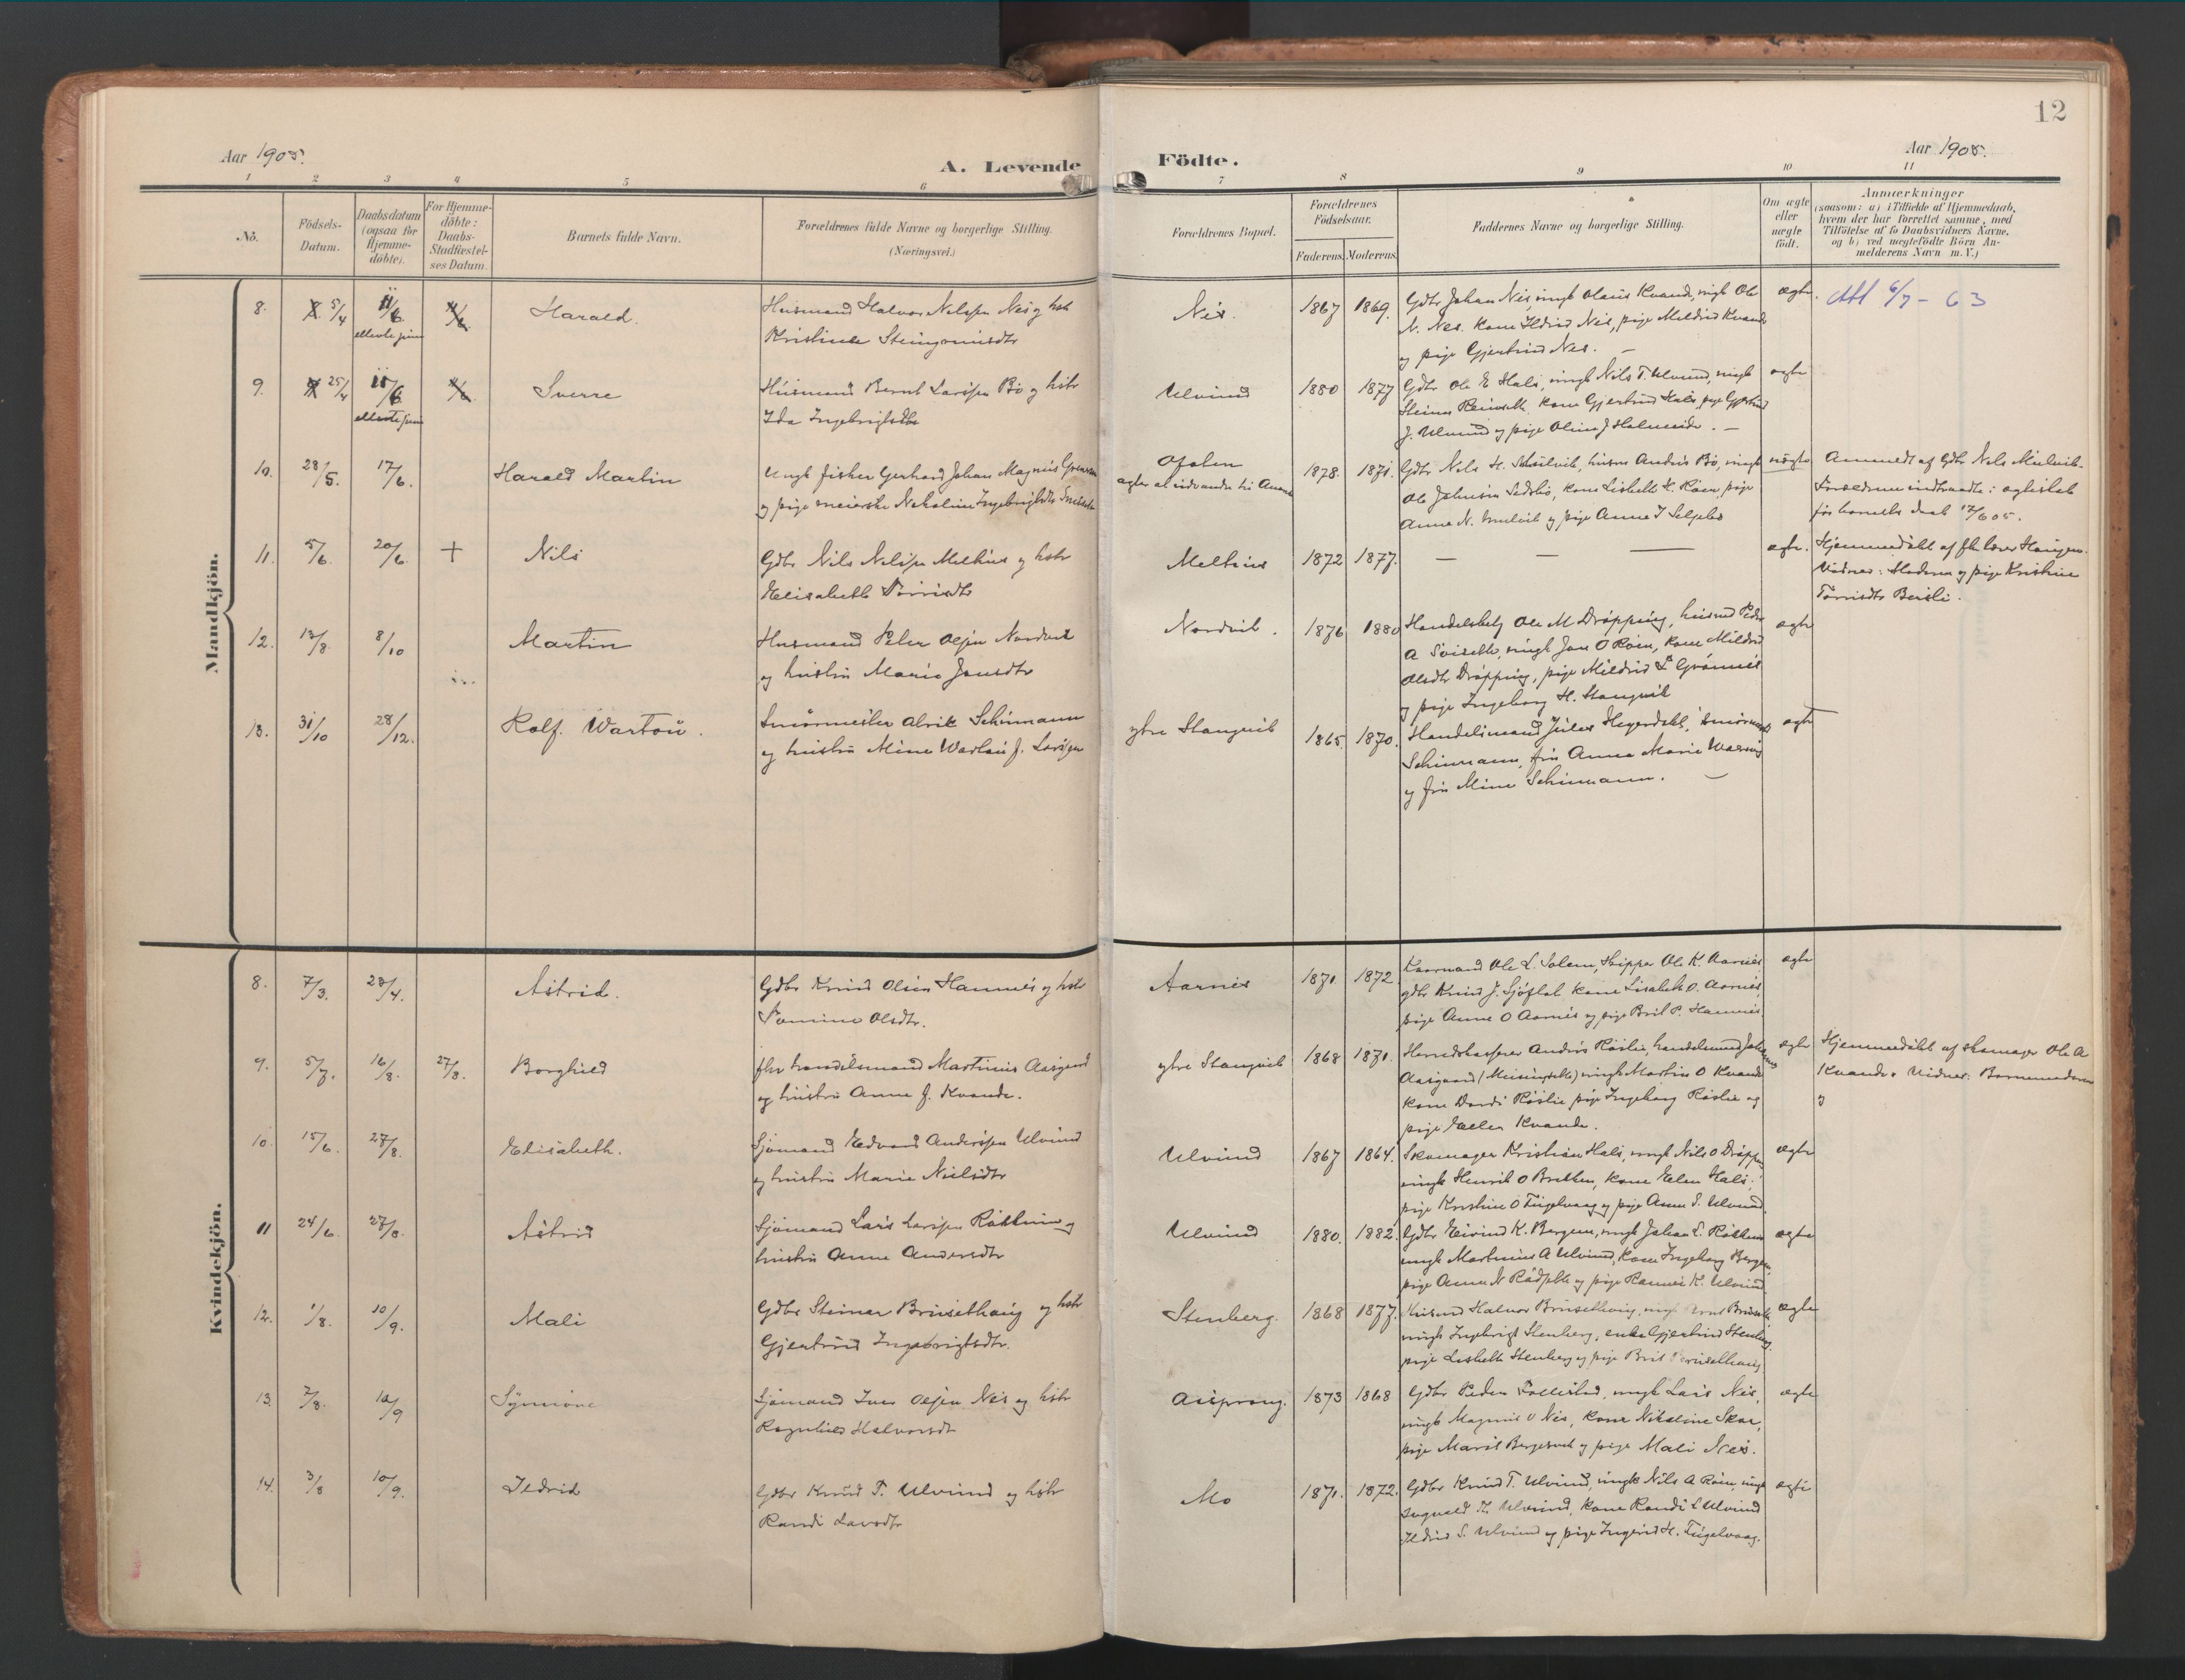 12
Aar 1905.
A. Levende Födte.
Aar 1905.
1 2 3 4 5 6 7 8 9 10 11
No.
Födsels-Datum.
Daabsdatum (ogsaa for Hjemme-döbte).
For Hjemme-döbte: Daabs-Stadfæstel-ses Datum.
Barnets fulde Navn.
Forældrenes fulde Navne og borgerlige Stilling.
(Næringsvei.)
Forældrenes Bopæl.
Forældrenes Födselsaar.
Faderens. Moderens.
Faddernes Navne og borgerlige Stilling.
Om ægte eller uægte födt.
Anmærkninger
(saasom: a) i Tilfælde af Hjemmedaab,
hvem der har forrettet samme, med
Tilföielse af to Daabsvidners Navne,
og b) ved uægtefödte Börn An-
melderens Navn m. V.)
Mandkjön.
8. 5/4 11/6 Harald. Husmand Halvor Nilssen Nes og hst
ellevte juni
Kristine Steingrimsdtr
Nes. 1867 1869. Gdbr Johan Nes ungk Olaus Kvande, ungk Ole
N. Nes. kone Ildrid Nes, pige Mildrid Kvande
og pige Gjertrud Nes. —
ægte. 6/7 - 63
9. 25/4 11/6 Sverre Husmand Bernt Larssen Bø og hstr
ellevte juni
Ida Ingebrigtsdtr
Ulvund 1880 1877 Gdbr Ole E Hals, ungk Nils T. Ulvund, ungk
Steinar kone Gjertrud Hals, pige Gjertrud
J. Ulvund og pige Oline J Halmeide. —
ægte
10. 28/5. 17/6. Harald Martin Ungk fisker Gerhard Johan Magnus
og pige meierske Nekoline Ingebrigtsdtr
1878. 1871. Gdbr Nils H. husm Anders Bø, ungk
Ole Johnsen kone Lisbeth H. Røen, pige
Anne N. og pige Anne I Selgebø
uægte Anmeldt af Gdbr Nils
Forældrene indtraadte i ægteskab
før barnets daab 17/6 05.
11. 5/6 20/6 + Nils Gdbr Nils Nilssen Melhus og hstr
Elisabeth Tørrisdtr
Melhus 1872 1877. — — —
ægte. Hjemmedøbt af fhv lærer Haugen.
Vidner: Moderen og pige Kristine
Tørrisdtr Bersli.
12. 13/8. 8/10 Martin Husmand Peter Olsen Nordvik
og hustru Marie Jonsdtr
Nordvik. 1876 1880 Handelsbetj Ole M Drøpping, husmd Peder
A Søiseth, ungk Jon O Røen, kone Mildrid
Olsdtr Drøpping, pige Mildrid L Grønnes
og pige Ingeborg H. Stangvik
ægte
13. 31/10 28/12. Rolf. Wartou. Smørmester Alrik Schiermann
og hustru Mine Wartou f. Larsen
ytre Stangvik 1865. 1870. Handelsmand Julius Heyerdahl,
Schiermann, fru Anna Marie
og fru Mine Schiermann. —
ægte
Kvindekjön.
8. 7/3. 23/4. Astrid. Gdbr Knud Olsen Hamnes og hstr
Olsdtr.
Aarnes 1871. 1872. Kaarmand Ole L. Solem, Skipper Ole K. Aarnes
gdbr Knud J. Sjøflot kone Lisabeth O. Aarnes,
pige Anne O Aarnes og pige Brit P. Hamnes
ægte
9. 5/7. 16/8. 27/8. Borghild fhv handelsmand Martinus Aasgaard
og hustru Anne J. Kvande.
ytre Stangvik 1868 1871. Herredskasserer Anders Røslie, handelsmand Johannes
Aasgaard ungk Martin O Kvande
kone Dordi Røslie pige Ingeborg Røslie og
pige Ellen Kvande.
ægte Hjemmedøbt af skomager Ole A
Kvande. Vidner: Barnemoderen
og
10. 15/6. 27/8. Elisabeth. Sjømand Edvard Anderssen Ulvund
og hustru Marie Nielsdtr
Ulvund 1867 1864. Skomager Kristian Hals, ungk Nils O Drøpping
ungk Henrik O Bratten, kone Elen Hals,
pige Kristine O Fugelvaag og pige Anne S. Ulvund.
ægte
11 24/6. 27/8. Astrid Sjømand Lars Larssen Røttum og
hustru Anne Andersdtr
Ulvund 1880. 1882. Gdbr Eivind K. Bergem, ungk Johan L. Røttum
ungk Martinus A Ulvund, kone Ingeborg Bergem,
pige Anne N og pige Rannei K. Ulvund
ægte
12. 1/8. 10/9. Mali Gdbr Steinar Brusethaug og hstr
Gjertrud Ingebrigtsdtr.
Stenberg. 1868 1877. Husmd Halvor Brusethaug,
ungk Ingebrigt Stenberg, enke Gjertrud Stenberg
pige Lisbeth Stenberg og pige Brit Brusethaug
ægte
13. 7/8. 10/9 Synnøve Sjømand Iver Olsen Nes og hstr
Ragnhild Halvorsdtr
Aasprong. 1873 1868 Gdbr Peder ungk Lars Nes,
ungk Magnus O Nes, kone Nikoline Skar,
pige Marit og pige Mali Nes.
ægte
14. 3/8 10/9. Ildrid Gdbr Knud T. Ulvund og hstr
Randi Larsdtr
Mo 1871. 1872. Gdbr Knud T. Ulvund, ungk Nils A Røen, ungk
K. Ulvund, kone Randi L Ulvund
Ildrid S. Ulvund og pige Ingerid H. Fugelvaag.
ægte